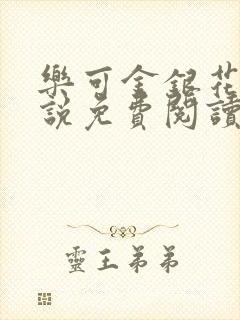 樂可金銀花
說免費閱讀
靈王弟弟